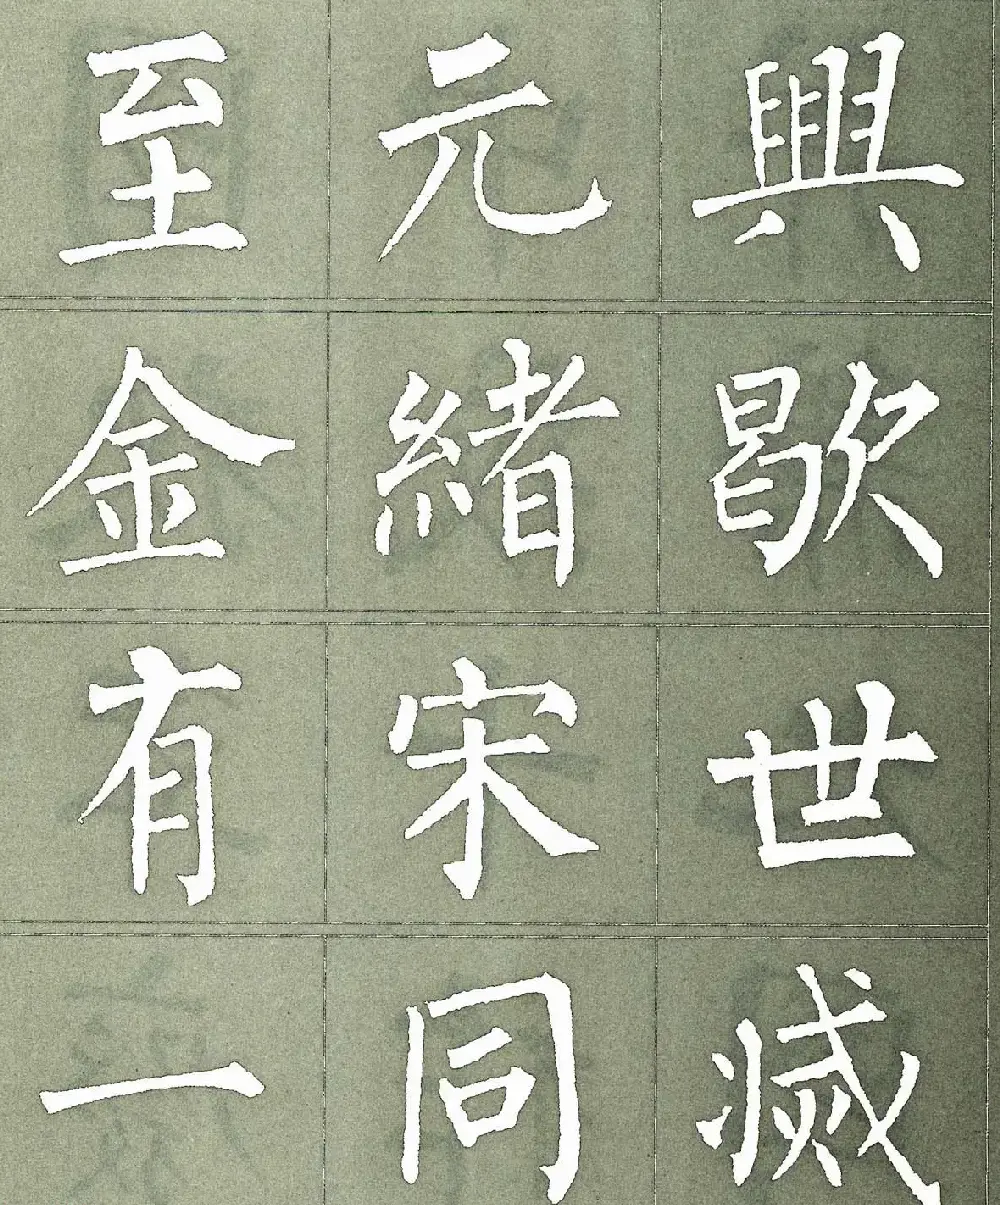 興歇世滅
元緒宋同
至金有一